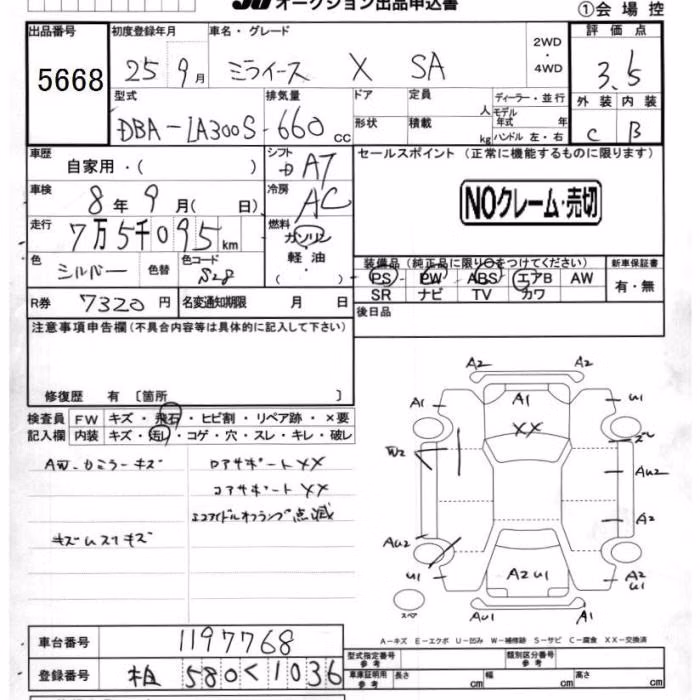 オークション出品申込書
①会場控
出品番号 初度登録年月 車名・グレード 2WD・4WD 評価点
5668 25 9月 ミライース X SA 3.5
型式 排気量 ドア 定員 人 ディーラー・並行 外装 内装
DBA-LA300S 660cc 形状 積載 kg モデル年式 年 ハンドル 左・右 C B
車歴 自家用・( ) シフト AT セールスポイント (正常に機能するものに限ります)
車検 8年 9月( 日) 冷房 AC
NOクレーム・売切
走行 7万5千095km 燃料 ガソリン
軽油・( )
色 シルバー 色替 色コード S28
装備品(純正品に限り○をつけてください) 新車保証書
PS PW ABS エアB AW 有・無
SR ナビ TV カワ
R券 7320円 名変通知期限 月 日
後日品
注意事項申告欄(不具合内容等は具体的に記入して下さい)
修復歴 有 〔箇所 〕
検査員 FW キズ・飛石・ヒビ割・リペア跡・×要
記入欄 内装 キズ・汚し・コゲ・穴・スレ・キレ・破レ
キズ
コアサポートXX
点滅
キズ
A2 A2
A1 A1 U1
XX
W2 AU2
A2
AU2
U1 A2U1 A2 U1
スペア AU1 A1
A-キズ E-エクボ U-凹み W-補修跡 S-サビ C-腐食 XX-交換済
車台番号 1197768
型式指定番号 参考 類別区分番号 参考
登録番号 580く1036
車庫証明用 参考 長さ cm 幅 cm 高さ cm